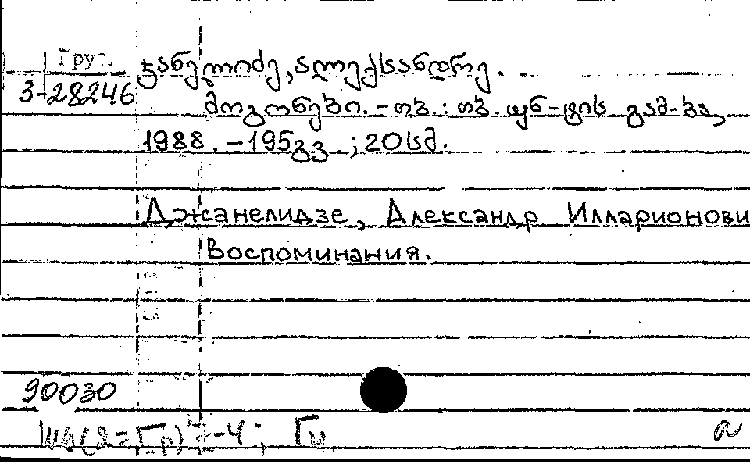 Груз.
3-28246
ჯანელიძე, ალექსანდრე.
მოგონებები. - თბ. : თბ. უნ-ტის გამ-ბა,
1988. - 195გვ. ; 20სმ.
Джанелидзе, Александр Илларионови
Воспоминания.
90030